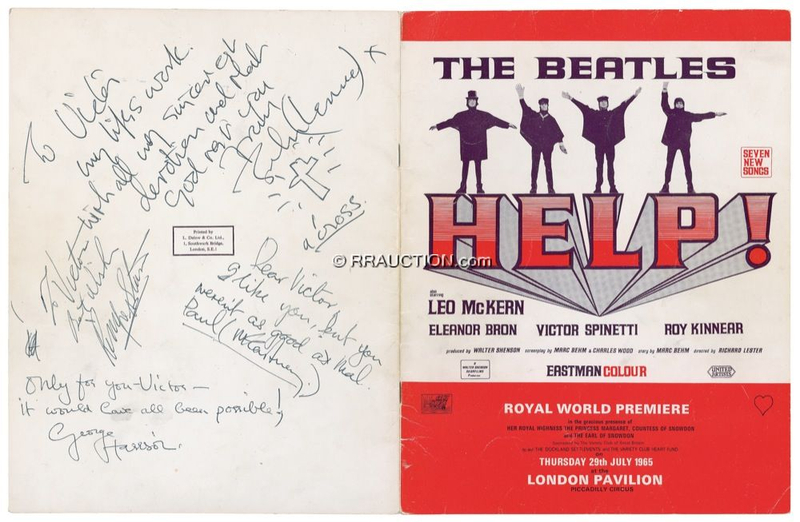 To Victor
my life's work.
with all my sincerest
devotion and that
God rest you
John (Lennon) x
a cross.
Printed by
L. Delow & Co. Ltd.,
London, S.E.1
To Victor
Best wishes
Ringo Starr
Dear Victor
I like you, but you
weren't as good as Mal.
Paul (McCartney)
Only for you - Victor —
it would have all been possible!
George
Harrison.
THE BEATLES
SEVEN
NEW
SONGS
HELP!
also
starring
LEO McKERN
ELEANOR BRON VICTOR SPINETTI ROY KINNEAR
produced by WALTER SHENSON screenplay by MARC BEHM & CHARLES WOOD story by MARC BEHM directed by RICHARD LESTER
A
WALTER SHENSON
Production
EASTMAN COLOUR
UNITED
ARTISTS
ROYAL WORLD PREMIERE
in the gracious presence of
HER ROYAL HIGHNESS THE PRINCESS MARGARET, COUNTESS OF SNOWDON
and THE EARL OF SNOWDON
to aid THE DOCKLAND SETTLEMENTS and THE VARIETY CLUB HEART FUND
on
THURSDAY 29th JULY 1965
at the
LONDON PAVILION
PICCADILLY CIRCUS
© RRAUCTION.com